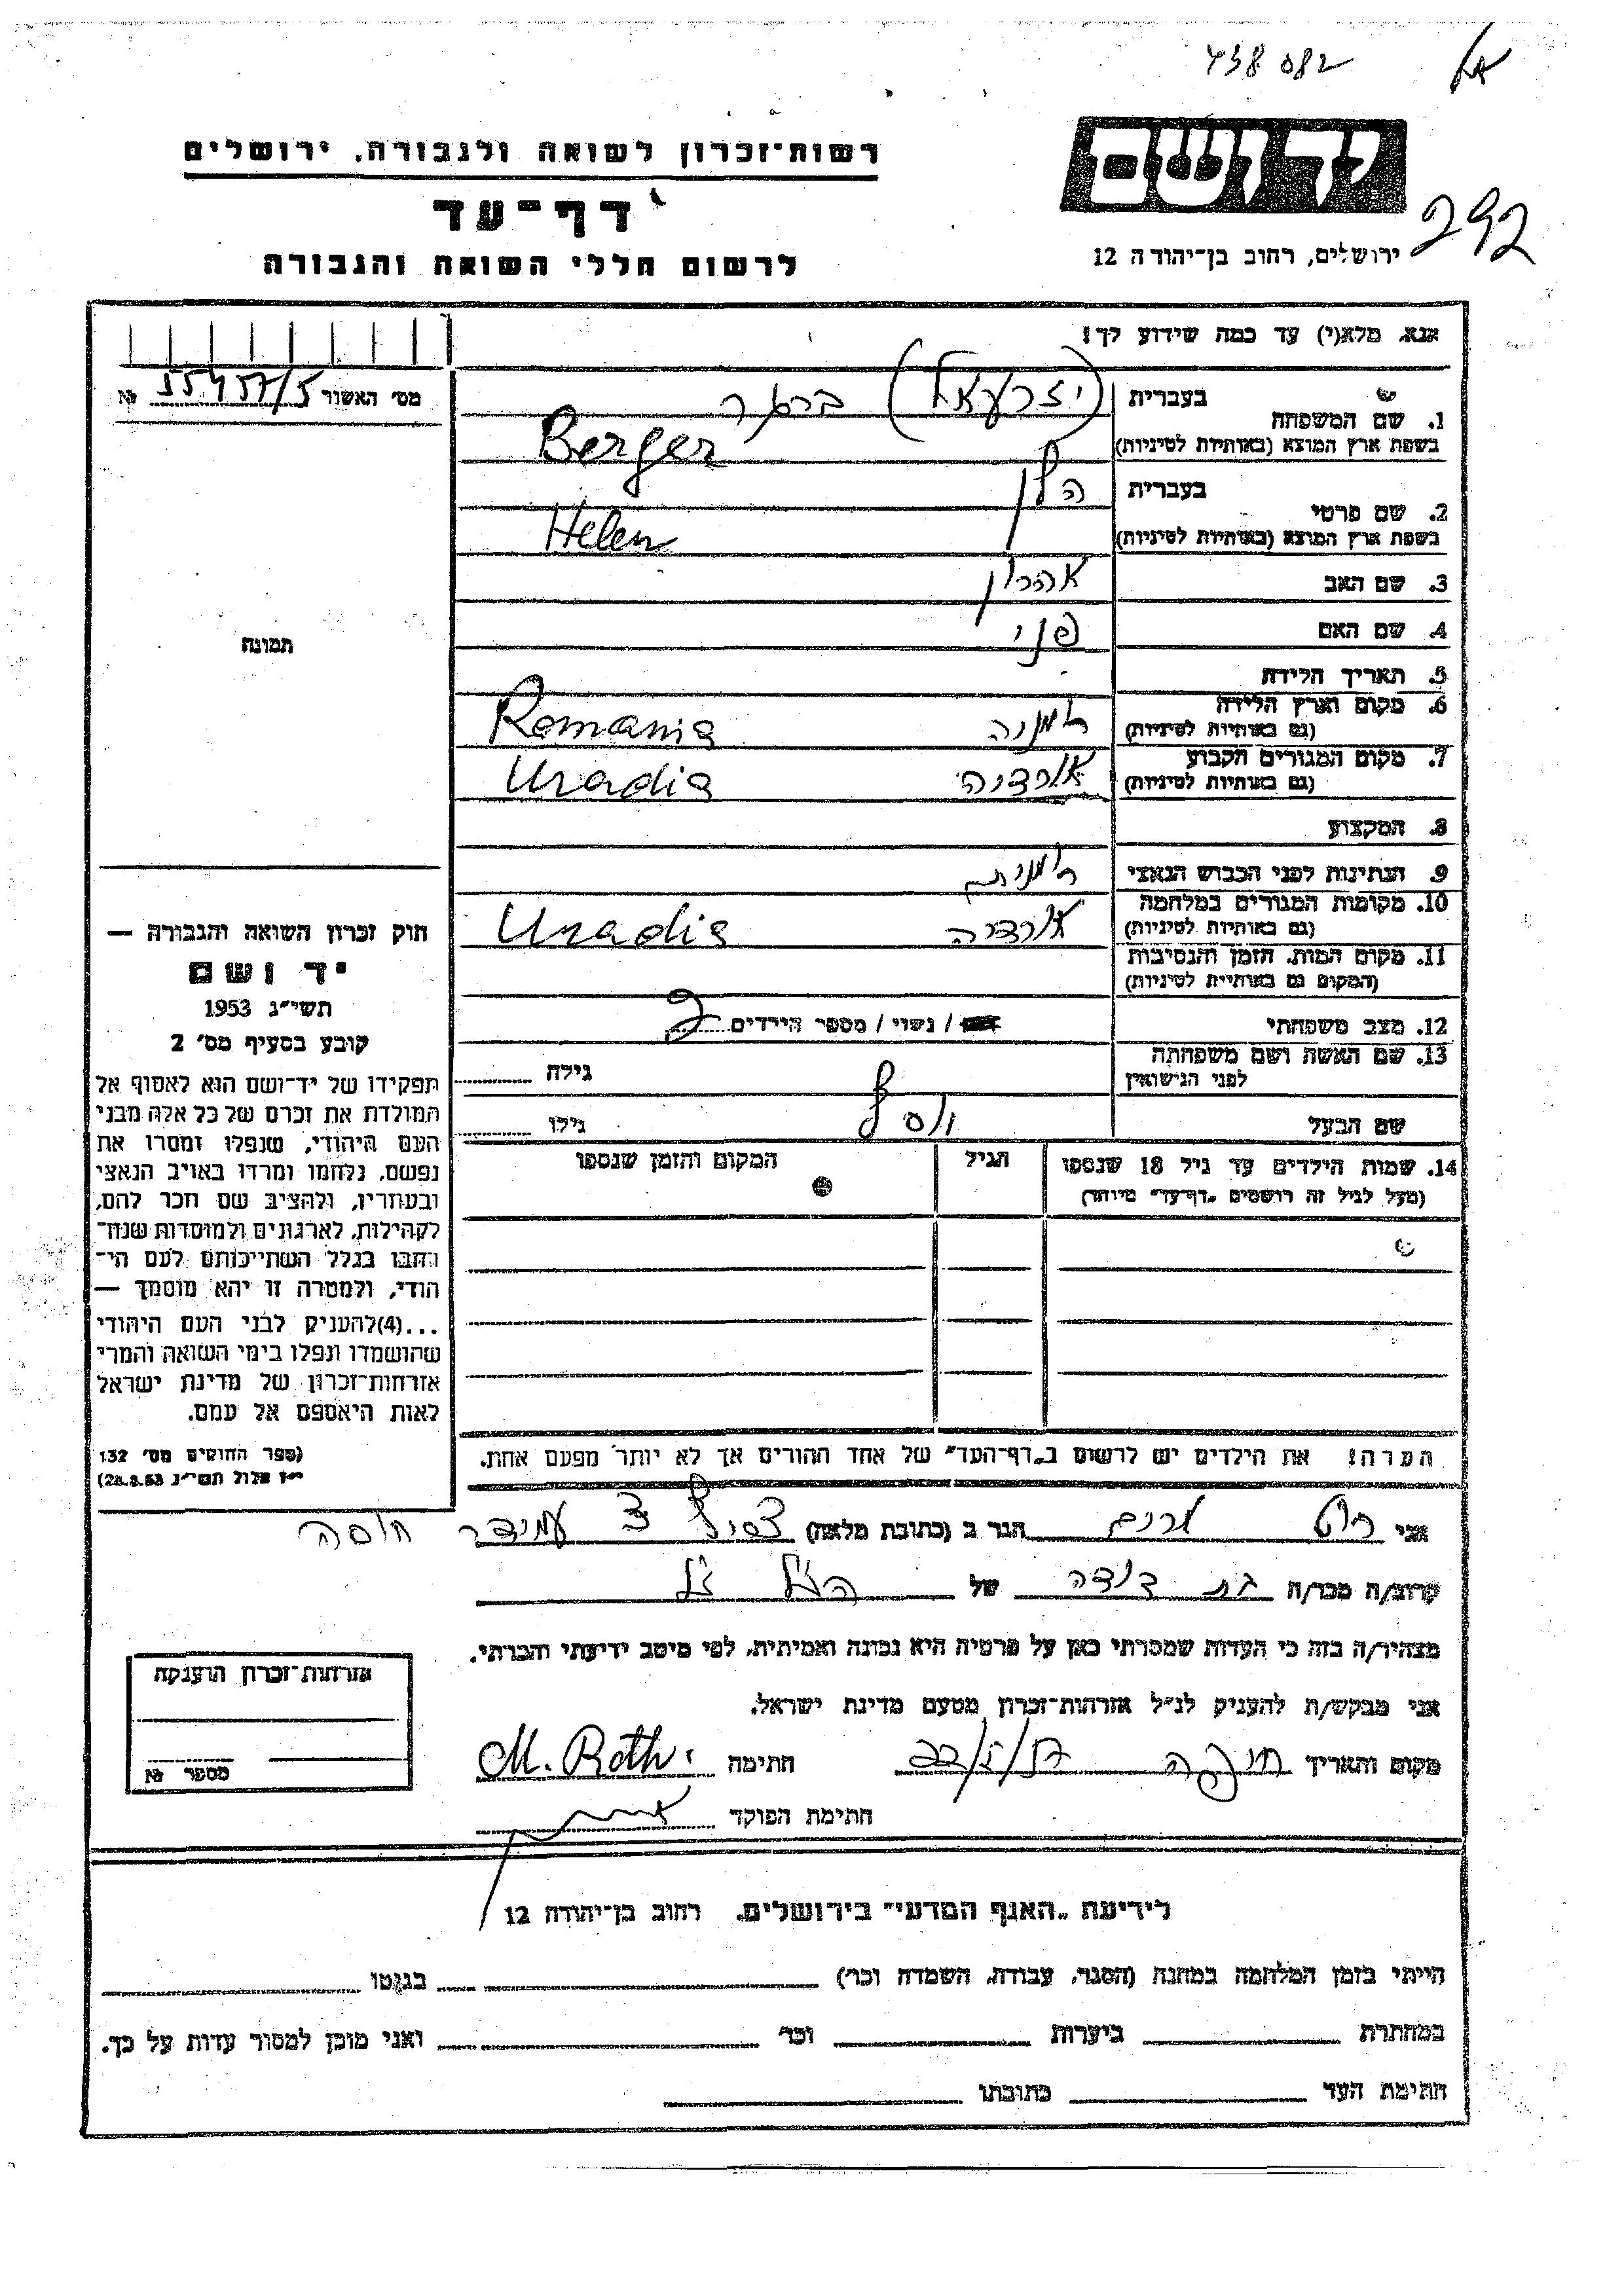 438082
יד ושם
292
ירושלים, רחוב בן־יהודה 12
רשות־זכרון לשואה ולגבורה, ירושלים
דף־עד
לרשום חללי השואה והגבורה
אנא, מלא(י) עד כמה שידוע לך!
מס׳ האשור 55457/5 №
1. שם המשפחה
בעברית (יזרעאל) ברגר
בשפת ארץ המוצא (באותיות לטיניות) Berger
2. שם פרטי
בעברית הלן
בשפת ארץ המוצא (באותיות לטיניות) Helen
3. שם האב אהרון
4. שם האם פני
5. תאריך הלידה
6. מקום וארץ הלידה
(גם באותיות לטיניות) רומניה Romania
7. מקום המגורים הקבוע
(גם באותיות לטיניות) אורדיה Uradia
8. המקצוע
9. הנתינות לפני הכבוש הנאצי רומנית
10. מקומות המגורים במלחמה
(גם באותיות לטיניות) אורדיה Uradia
11. מקום המות, הזמן והנסיבות
(המקום גם באותיות לטיניות)
12. מצב משפחתי / נשוי / מספר הילדים 2
13. שם האשה ושם משפחתה
לפני הנישואין גילה
שם הבעל גילו
14. שמות הילדים עד גיל 18 שנספו
(מעל לגיל זה רושמים „דף־עד״ מיוחד)
הגיל
המקום והזמן שנספו
הערה! את הילדים יש לרשום ב„דף־העד״ של אחד ההורים אך לא יותר מפעם אחת.
תמונה
חוק זכרון השואה והגבורה —
יד ושם
תשי״ג 1953
קובע בסעיף מס׳ 2
תפקידו של יד־ושם הוא לאסוף אל
המולדת את זכרם של כל אלה מבני
העם היהודי, שנפלו ומסרו את
נפשם, נלחמו ומרדו באויב הנאצי
ובעוזריו, ולהציב שם וזכר להם,
לקהילות, לארגונים ולמוסדות שנח־
רבו בגלל השתייכותם לעם הי־
הודי, ולמטרה זו יהא מוסמך —
...(4)להעניק לבני העם היהודי
שהושמדו ונפלו בימי השואה והמרי
אזרחות־זכרון של מדינת ישראל
לאות היאספם אל עמם.
(ספר החוקים מס׳ 132
י״ז אלול תשי״ג 28.8.53)
אני רוט מרים הגר ב (כתובת מלאה) עמידר
קרוב/ה מכר/ה בת דודה של הנ״ל
מצהיר/ה בזה כי העדות שמסרתי כאן על פרטיה היא נכונה ואמיתית, לפי מיטב ידיעתי והכרתי.
אני מבקש/ת להעניק לנ״ל אזרחות־זכרון מטעם מדינת ישראל.
מקום ותאריך חיפה חתימה M. Roth.
חתימת הפוקד
אזרחות־זכרון הוענקה
מספר №
לידיעת „האגף המדעי״ בירושלים, רחוב בן־יהודה 12
הייתי בזמן המלחמה במחנה (הסגר, עבודה, השמדה וכו׳) בגטו
במחתרת ביערות וכו׳ ואני מוכן למסור עדות על כך.
חתימת העד כתובתו